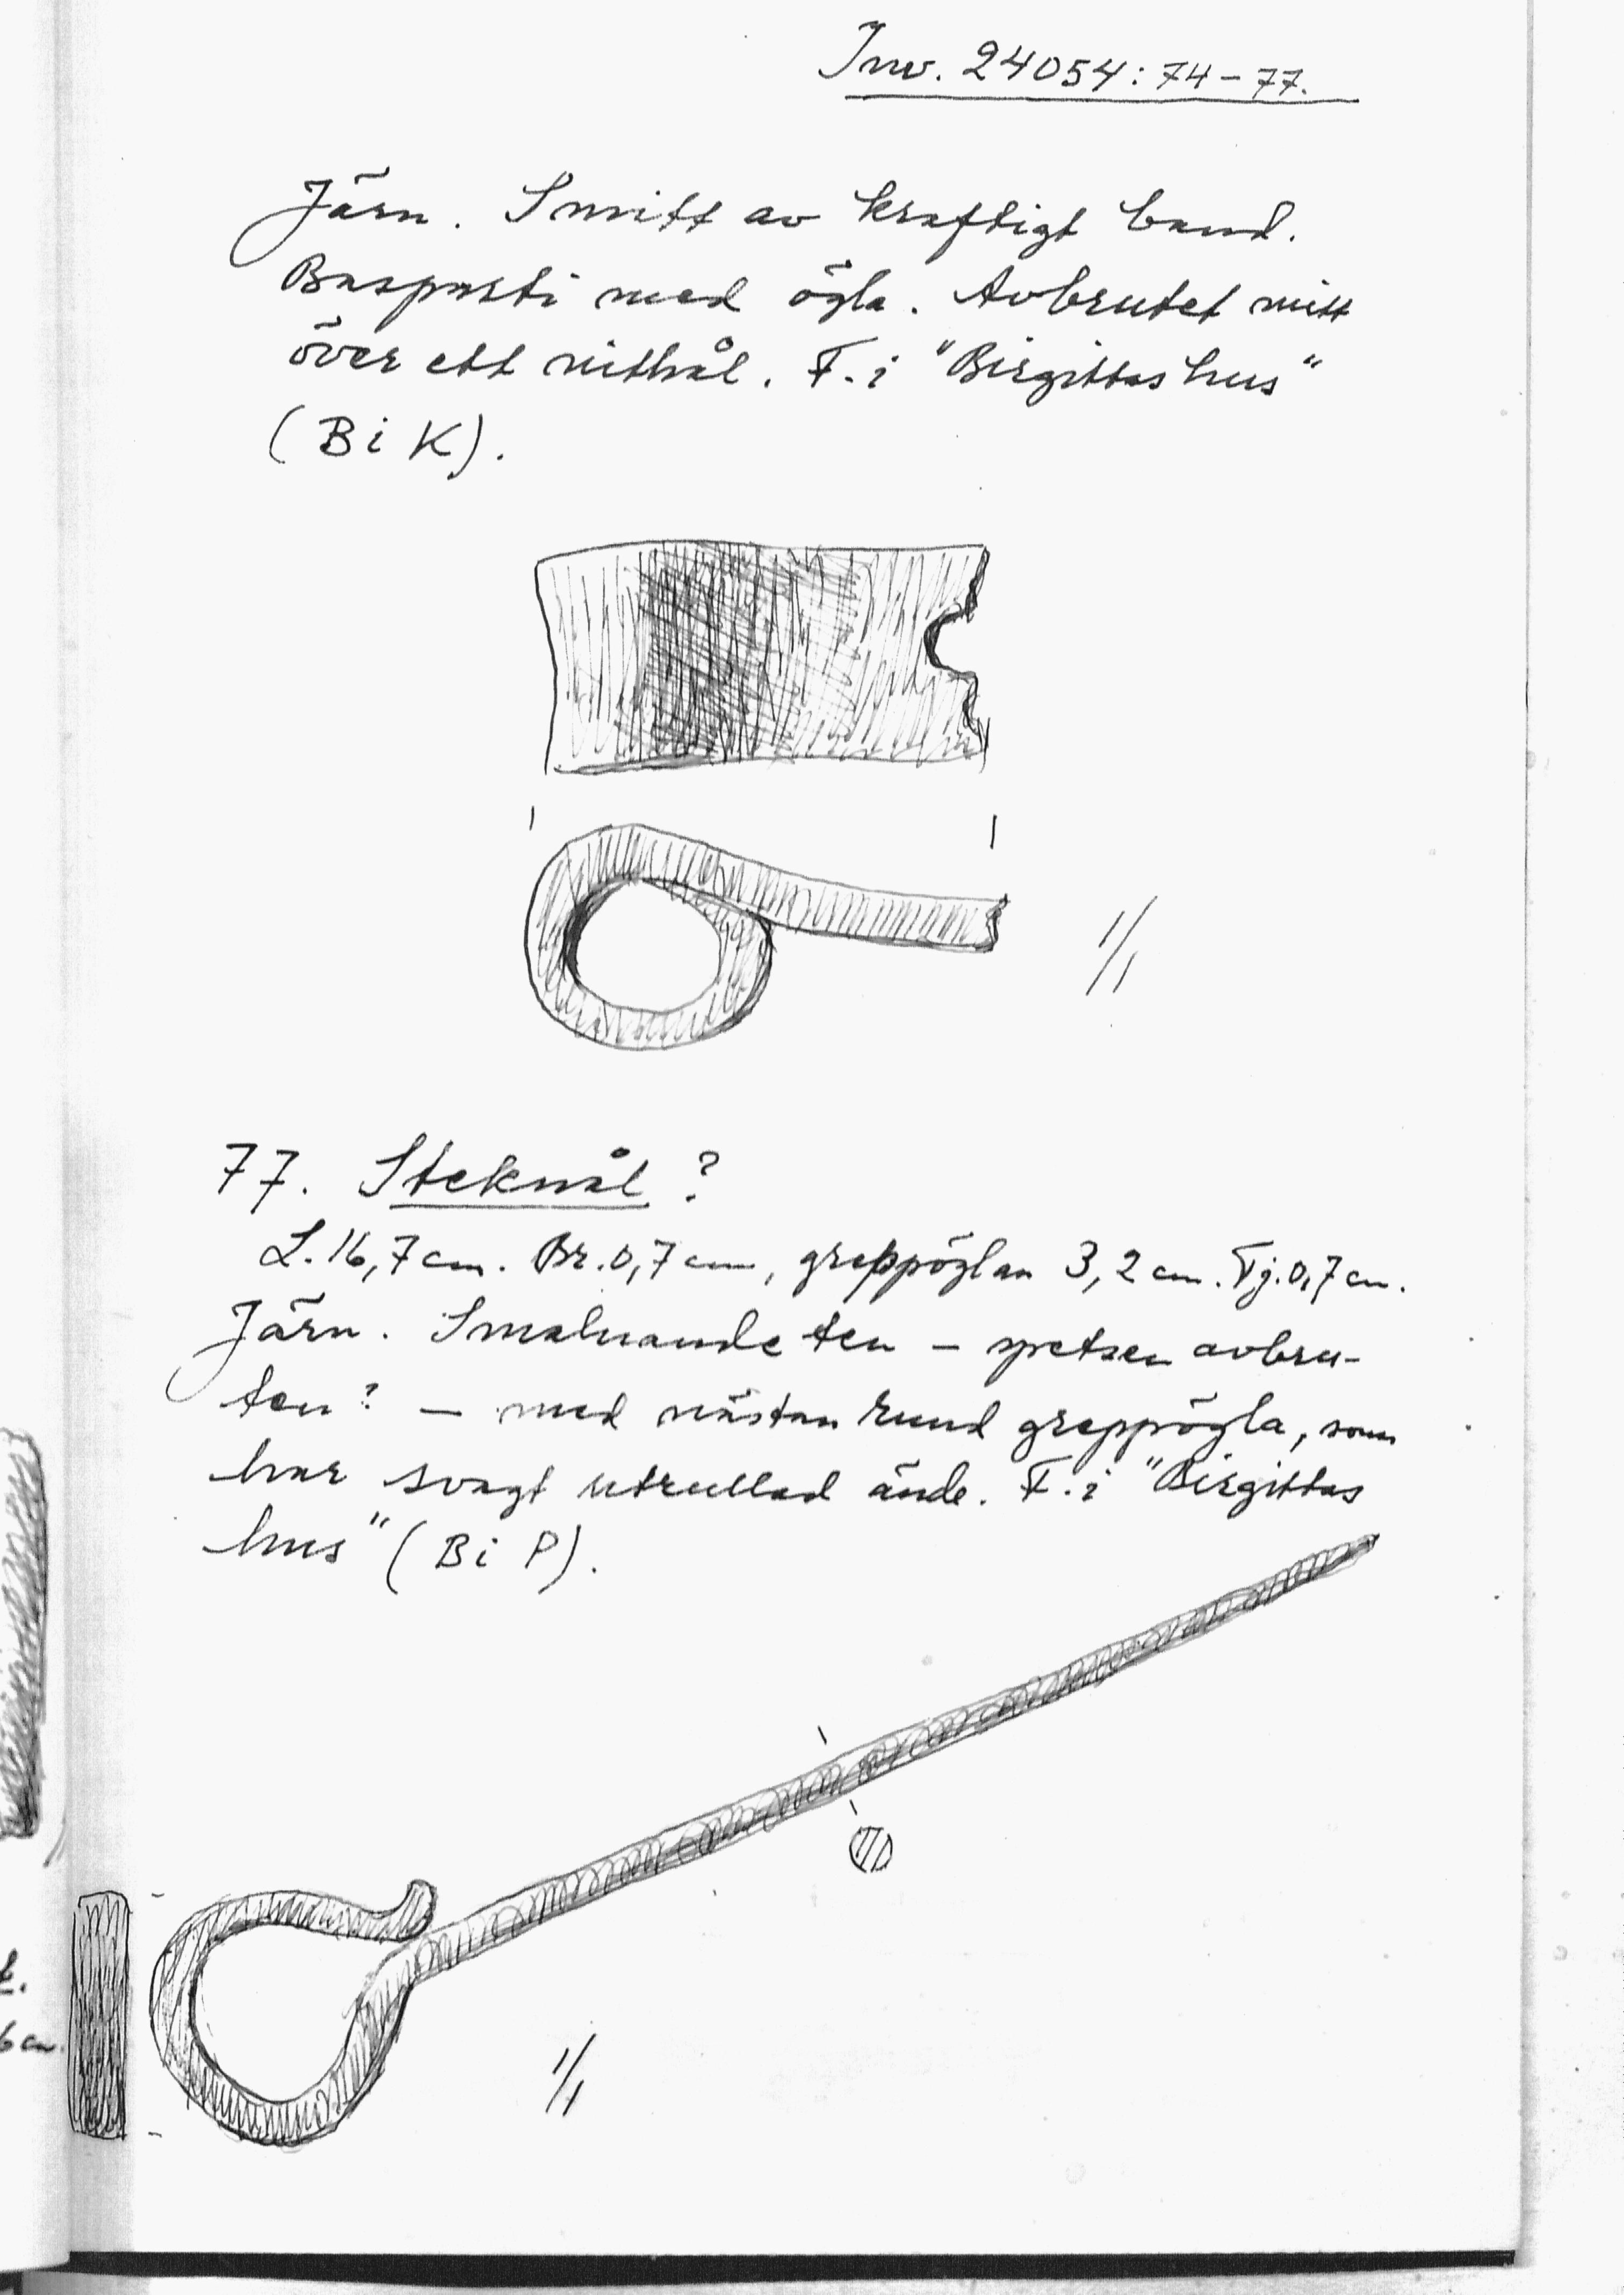 Inv. 24054:74-77.
Järn. Smitt av kraftigt band.
Basparti med ögla. Avbrutet mitt
över ett nithål. F. i "Birgittas hus"
(Bi K).
1/1
77. Steknål?
L. 16,7 cm. Br. 0,7 cm, greppöglan 3,2 cm. Tj. 0,7 cm.
Järn. Smalnande ten – spetsen avbru-
ten? – med nästan rund greppögla, som
har svagt utrullad ände. F. i "Birgittas
hus" (Bi P).
6 cm.
1/1